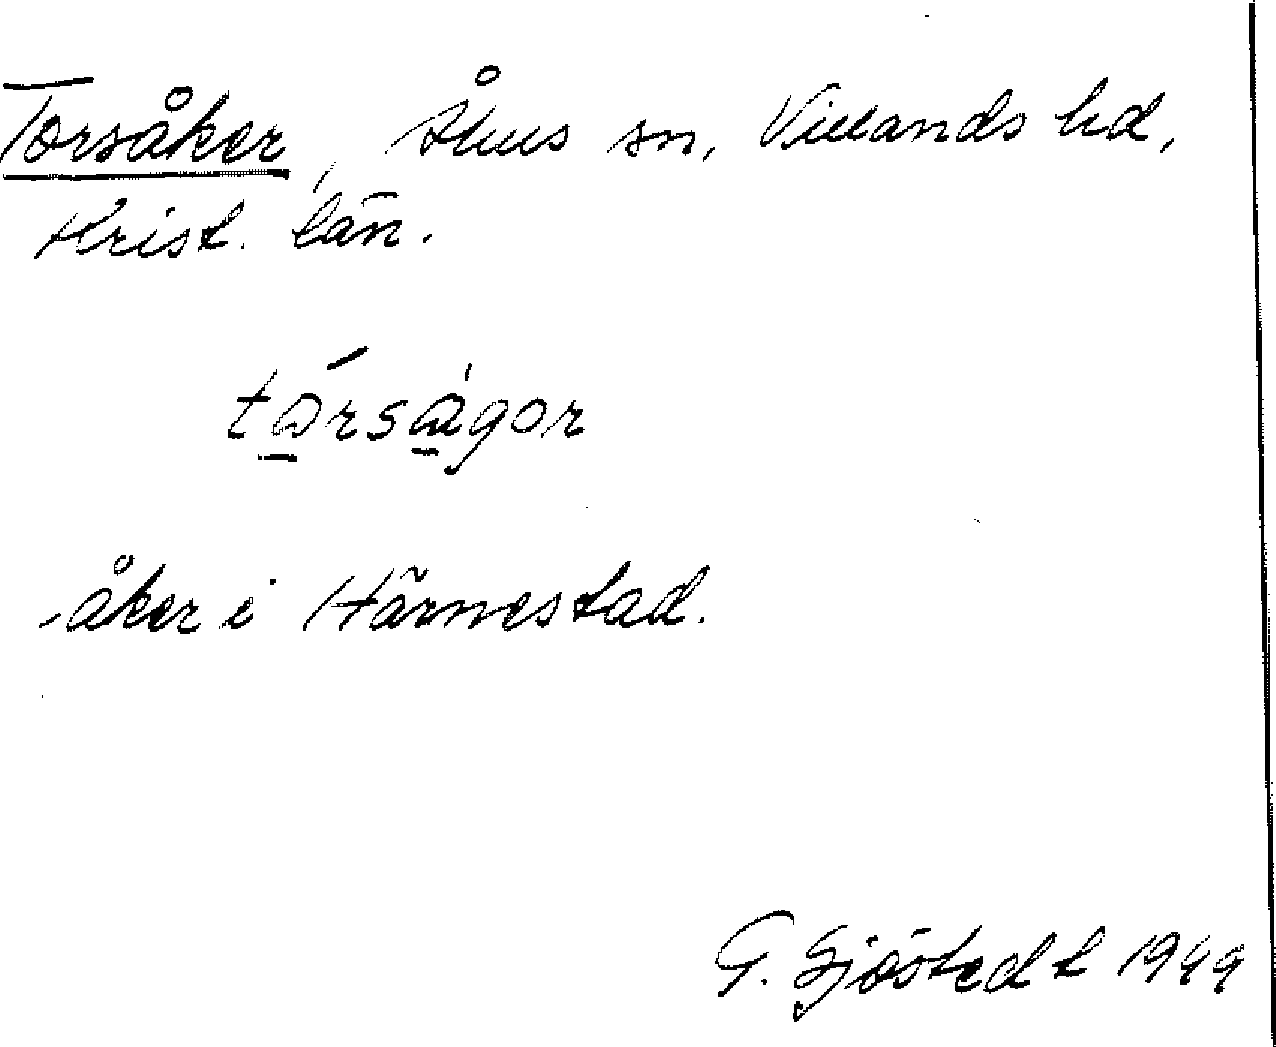 Torsåker, Åhus sn, Villands hd,
Krist. län.
tårsågor
-åker i Härnestad.
G. Sjöstedt 1949